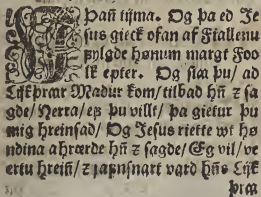 Þan tijma. Og þa ed Je
sus gieck ofan af Fiallenu
fylgde hønum margt Foo
lk epter. Og siaa þu/ ad
Lijkþraar Madur kom/ tilbad hn̄ ꝛ sa
gde/ Herra/ eff þu villt/ þa gietur þu
mig hreinsad/ Og Jesus riette wt hø
ndina ahrærde hn̄ ꝛ sagde/ Eg vil/ ve
ertu hreiñ/ ꝛ japnsnart vard hn̄s Lijk
þraa